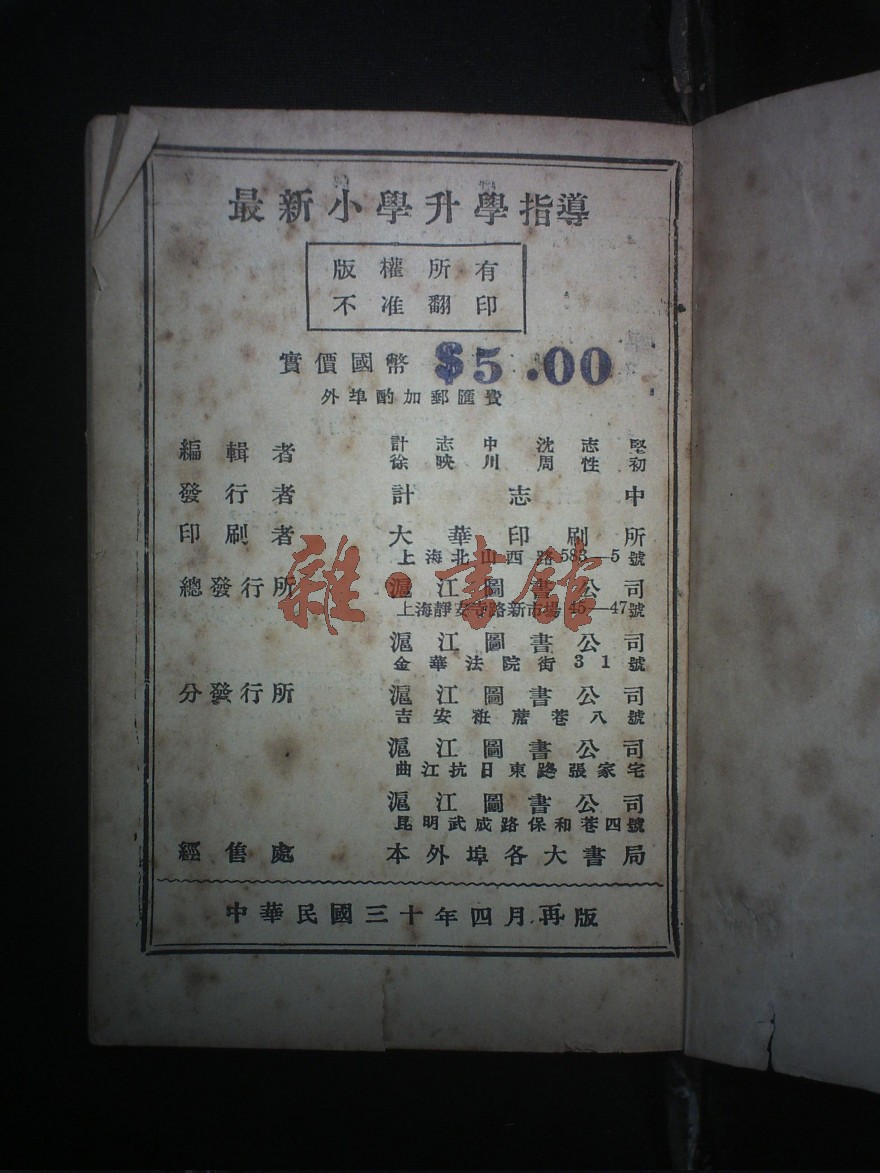 最新小學升學指導
版權所有
不准翻印
實價國幣 $5.00
外埠酌加郵匯費
編輯者 計志中 沈志堅
徐映川 周性初
發行者 計志中
印刷者 大華印刷所
上海北山西路583—5號
總發行所 滬江圖書公司
上海靜安寺路新市場45—47號
滬江圖書公司
金華法院街31號
分發行所 滬江圖書公司
吉安粧蓆巷八號
滬江圖書公司
曲江抗日東路張家宅
滬江圖書公司
昆明武成路保和巷四號
經售處 本外埠各大書局
中華民國三十年四月再版
雜·書館